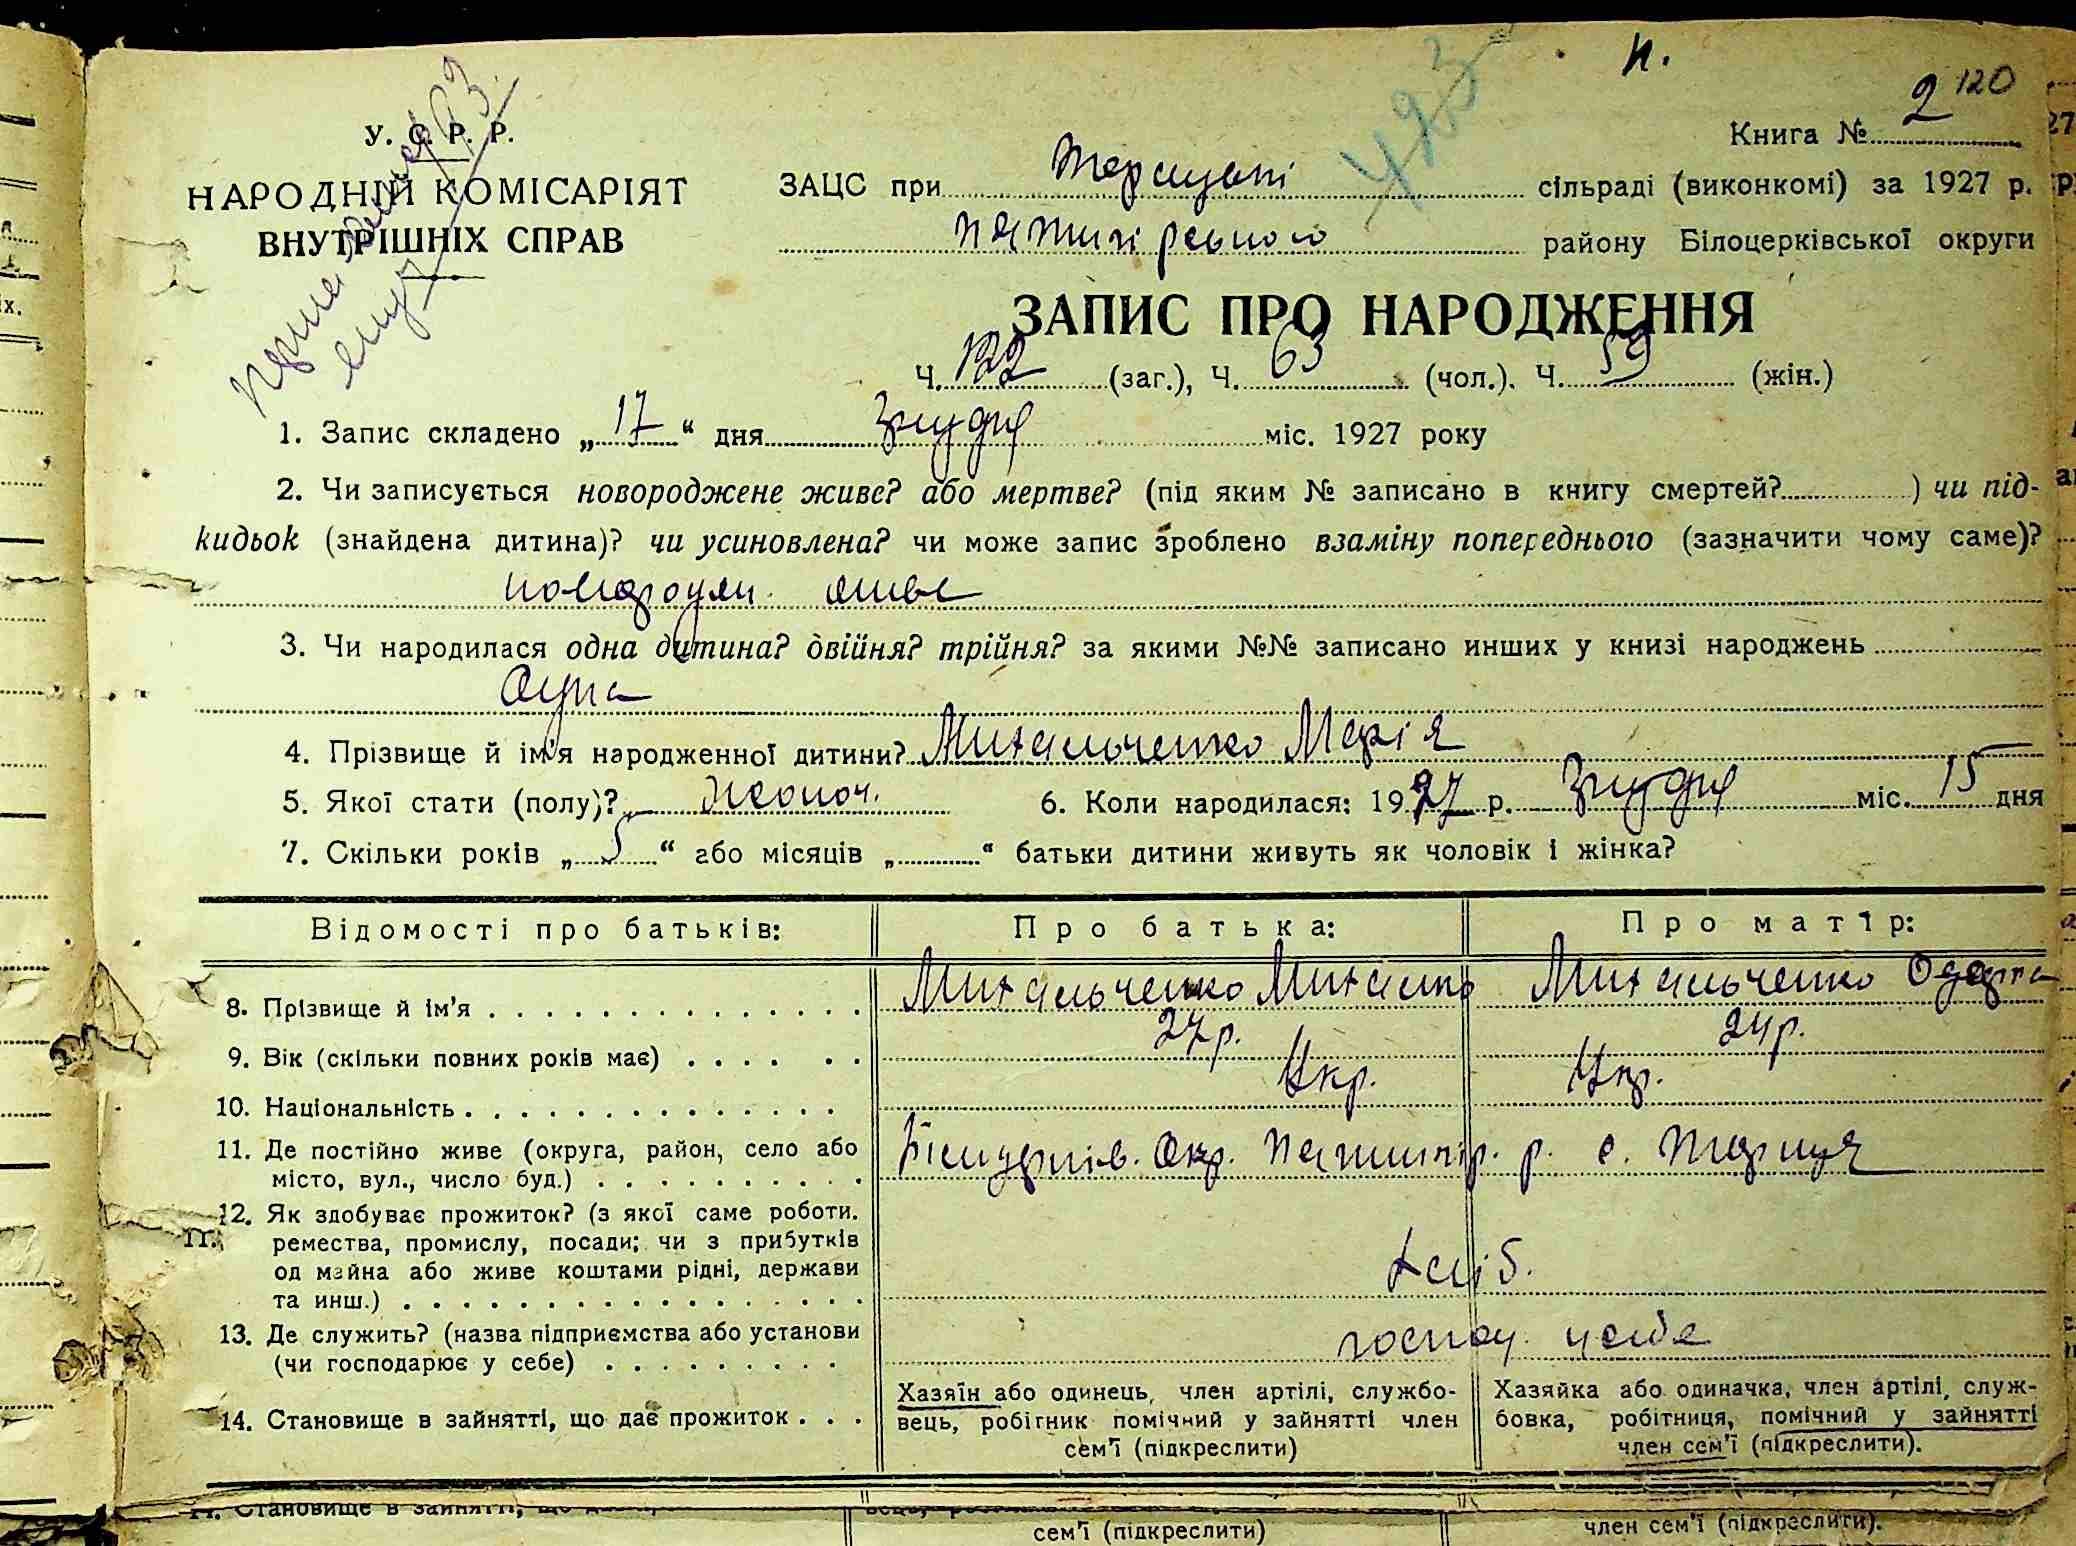 н.
120
У. С. Р. Р.
Книга № 2
НАРОДНІЙ КОМІСАРІЯТ
ВНУТРІШНІХ СПРАВ
423
ЗАЦС при сільраді (виконкомі) за 1927 р.
Пятигірського району Білоцерківської округи
ЗАПИС ПРО НАРОДЖЕННЯ
Ч. 122 (заг.), Ч. 63 (чол.). Ч. 59 (жін.)
1. Запис складено „17“ дня Грудня міс. 1927 року
2. Чи записується новороджене живе? або мертве? (під яким № записано в книгу смертей? ) чи під-
кидьок (знайдена дитина)? чи усиновлена? чи може запис зроблено взаміну попереднього (зазначити чому саме)?
живе
3. Чи народилася одна дитина? двійня? трійня? за якими №№ записано инших у книзі народжень
Одна
4. Прізвище й ім'я народженної дитини? Михальченко Марія
5. Якої стати (полу)? жоноч. 6. Коли народилася: 1927 р. Грудня міс. 15 дня
7. Скільки років „5“ або місяців „ “ батьки дитини живуть як чоловік і жінка?
Відомості про батьків: Про батька: Про матір:
8. Прізвище й ім'я Михальченко Михайло Михальченко Одарка
9. Вік (скільки повних років має) 27 р. 24 р.
10. Національність Укр. Укр.
11. Де постійно живе (округа, район, село або
місто, вул., число буд.) Білоцерків. Окр. Пятигір. р. с. Териця
12. Як здобуває прожиток? (з якої саме роботи.
ремества, промислу, посади; чи з прибутків
од майна або живе коштами рідні, держави
та инш.) хліб.
13. Де служить? (назва підприємства або установи
(чи господарює у себе) господ. у себе
14. Становище в зайнятті, що дає прожиток
Хазяїн або одинець, член артілі, службо-
вець, робітник помічний у зайнятті член
сем'ї (підкреслити)
Хазяйка або одиначка, член артілі, служ-
бовка, робітниця, помічний у зайнятті
член сем'ї (підкреслити).
14. Становище в зайнятті, що
сем'ї (підкреслити)
член сем'ї (підкреслити).